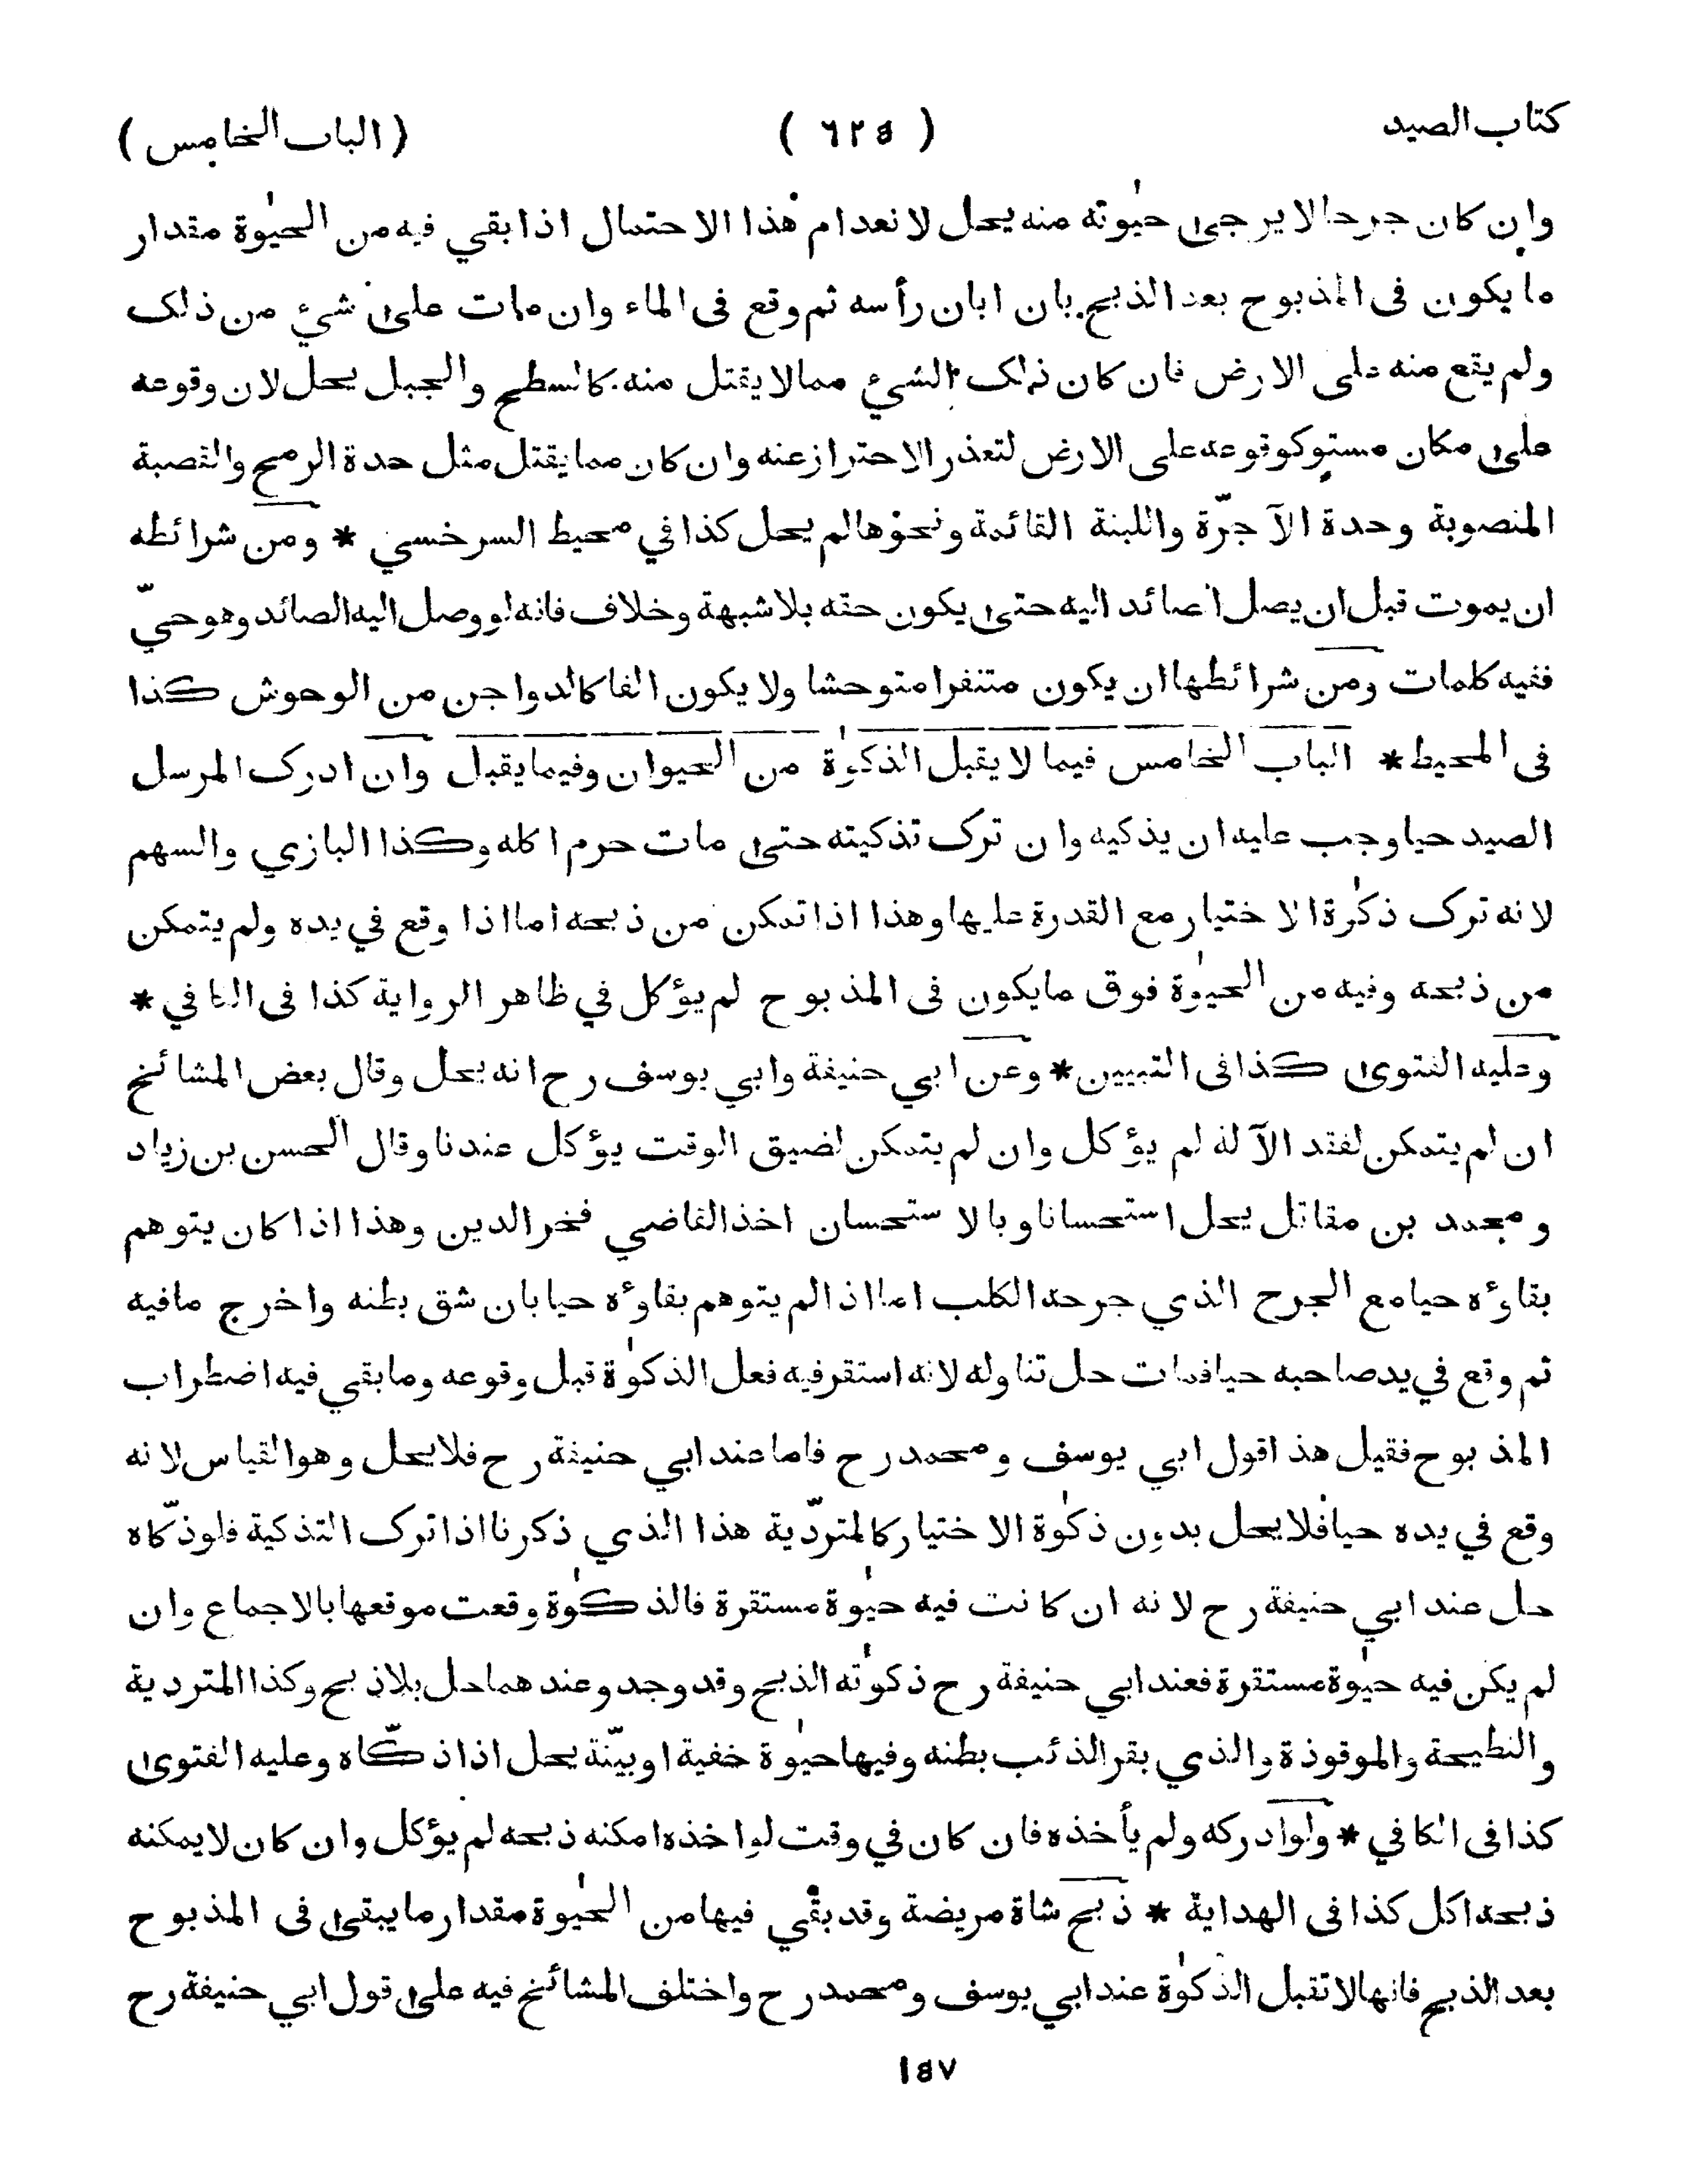 كتاب الصيد ( ٦٢٥ ) ( الباب الخامس )
وان كان جرحا لا يرجى حيٰوته منه يحل لانعدام هٰذا الاحتمال اذا بقي فيه من الحيٰوة مقدار
ما يكون فى المذبوح بعد الذبح بان ابان رأسه ثم وقع فى الماء وان مات على شيء من ذلك
ولم يقع منه على الارض فان كان ذلك الشيء مما لا يقتل منه كالسطح والجبل يحل لان وقوعه
على مكان مستوٍ كوقوعه على الارض لتعذر الاحتراز عنه وان كان مما يقتل مثل حدة الرمح والقصبة
المنصوبة وحدة الآجرّة واللبنة القائمة ونحوها لم يحل كذا في محيط السرخسي * ومن شرائطه
ان يموت قبل ان يصل الصائد اليه حتى يكون حقه بلا شبهة وخلاف فانه لو وصل اليه الصائد وهو حيّ
ففيه كلمات ومن شرائطها ان يكون متنفرا متوحشا ولا يكون الفا كالدواجن من الوحوش كذا
فى المحيط * الباب الخامس فيما لا يقبل الذكٰوة من الحيوان وفيما يقبل وان ادرك المرسل
الصيد حيا وجب عليه ان يذكيه وان ترك تذكيته حتى مات حرم اكله وكذا البازي والسهم
لانه ترك ذكٰوة الاختيار مع القدرة عليها وهذا اذا تمكن من ذبحه اما اذا وقع في يده ولم يتمكن
من ذبحه وفيه من الحيٰوة فوق ما يكون فى المذبوح لم يؤكل في ظاهر الرواية كذا فى الكافي *
وعليه الفتوى كذا فى التبيين * وعن ابي حنيفة وابي يوسف رح انه يحل وقال بعض المشائخ
ان لم يتمكن لفقد الآلة لم يؤكل وان لم يتمكن لضيق الوقت يؤكل عندنا وقال الحسن بن زياد
ومحمد بن مقاتل يحل استحسانا وبالاستحسان اخذ القاضي فخر الدين وهذا اذا كان يتوهم
بقاؤه حيا مع الجرح الذي جرحه الكلب اما اذا لم يتوهم بقاؤه حيا بان شق بطنه واخرج ما فيه
ثم وقع في يد صاحبه حيا فمات حل تناوله لانه استقر فيه فعل الذكٰوة قبل وقوعه وما بقي فيه اضطراب
المذبوح فقيل هذا قول ابي يوسف ومحمد رح فاما عند ابي حنيفة رح فلا يحل وهو القياس لانه
وقع في يده حيا فلا يحل بدون ذكٰوة الاختيار كالمتردّية هذا الذي ذكرنا اذا ترك التذكية فلو ذكّاه
حل عند ابي حنيفة رح لانه ان كانت فيه حيٰوة مستقرة فالذكٰوة وقعت موقعها بالاجماع وان
لم يكن فيه حيٰوة مستقرة فعند ابي حنيفة رح ذكٰوته الذبح وقد وجد وعندهما حل بلا ذبح وكذا المتردية
والنطيحة والموقوذة والذي بقر الذئب بطنه وفيها حيٰوة خفية او بيّنة يحل اذا ذكّاه وعليه الفتوى
كذا فى الكافي * ولو ادركه ولم يأخذه فان كان في وقت لو اخذه امكنه ذبحه لم يؤكل وان كان لا يمكنه
ذبحه اكل كذا فى الهداية * ذبح شاة مريضة وقد بقي فيها من الحيٰوة مقدار ما يبقى فى المذبوح
بعد الذبح فانها لا تقبل الذكٰوة عند ابي يوسف ومحمد رح واختلف المشائخ فيه على قول ابي حنيفة رح
١٥٧